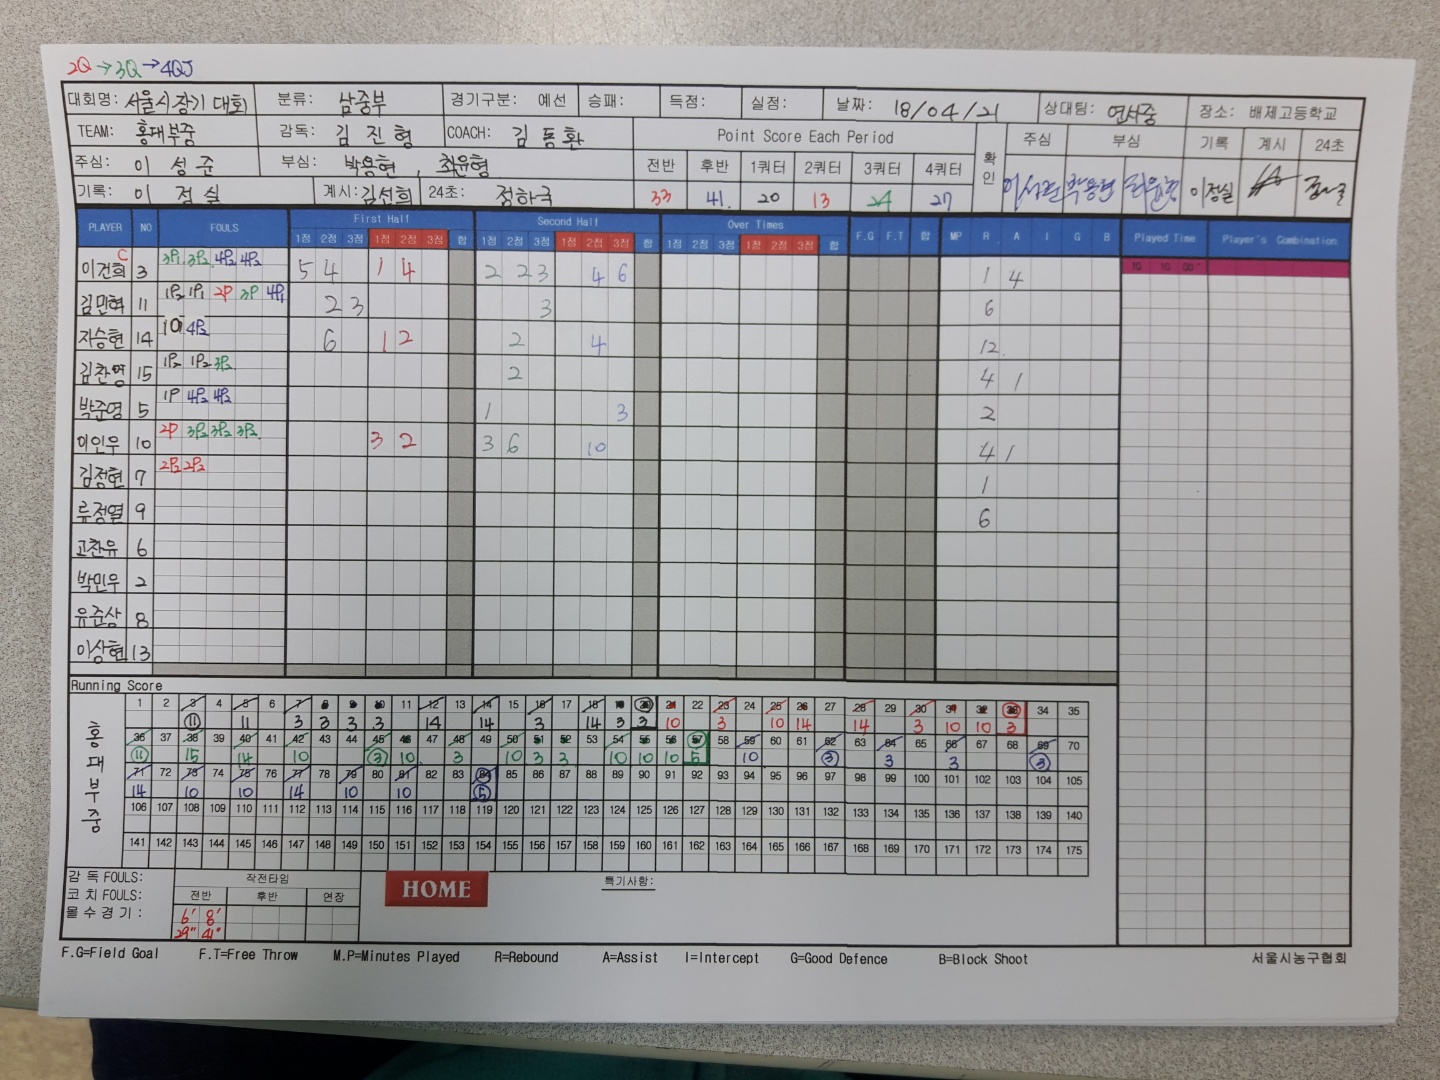 2Q→3Q→4Q
대회명: 서울시장기 대회 분류: 남중부 경기구분: 예선 승패: 득점: 실점: 날짜: 18/04/21 상대팀: 연서중 장소: 배제고등학교
TEAM: 홍대부중 감독: 김진형 COACH: 김동환 Point Score Each Period 확인 주심 부심 기록 계시 24초
주심: 이성준 부심: 박용현, 최윤형 전반 후반 1쿼터 2쿼터 3쿼터 4쿼터
기록: 이정실 계시: 김선희 24초: 정하국 33 41. 20 13 24 27 이정실
PLAYER NO FOULS First Half Second Half Over Times F.G F.T 합 MP R A I G B Played Time Player's Combination
1점 2점 3점 1점 2점 3점 합 1점 2점 3점 1점 2점 3점 합 1점 2점 3점 1점 2점 3점 합
이건희 C 3 3P1 3P2 4P2 4P2 5 4 1 4 2 2 2 3 4 6 1 4 10 10 00"
김민혁 11 1P2 1P1 2P 3P 4P1 2 3 3 6
지승현 14 10 4P2 6 1 2 2 4 12.
김찬영 15 1P2 1P2 3P2 2 4 1
박준영 5 1P 4P2 4P2 1 3 2
이인우 10 2P 3P2 3P2 3P2 3 2 3 6 10 4 1
김정현 7 2P2 2P2 1
류정열 9 6
고찬유 6
박민우 2
유준상 8
이상현 13
Running Score
홍대부중
1 2 3 4 5 6 7 8 9 10 11 12 13 14 15 16 17 18 19 20 21 22 23 24 25 26 27 28 29 30 31 32 33 34 35
11 11 3 3 3 3 14 14 3 14 3 3 10 3 10 14 14 3 10 10 3
36 37 38 39 40 41 42 43 44 45 46 47 48 49 50 51 52 53 54 55 56 57 58 59 60 61 62 63 64 65 66 67 68 69 70
11 15 14 10 3 10 3 10 3 3 10 10 10 5 10 3 3 3 3
71 72 73 74 75 76 77 78 79 80 81 82 83 84 85 86 87 88 89 90 91 92 93 94 95 96 97 98 99 100 101 102 103 104 105
14 10 10 14 10 10 5
106 107 108 109 110 111 112 113 114 115 116 117 118 119 120 121 122 123 124 125 126 127 128 129 130 131 132 133 134 135 136 137 138 139 140
141 142 143 144 145 146 147 148 149 150 151 152 153 154 155 156 157 158 159 160 161 162 163 164 165 166 167 168 169 170 171 172 173 174 175
감독 FOULS: 작전타임 HOME 특기사항:
코치 FOULS: 전반 후반 연장
몰수경기: 6' 8'
29" 41"
F.G=Field Goal F.T=Free Throw M.P=Minutes Played R=Rebound A=Assist I=Intercept G=Good Defence B=Block Shoot 서울시농구협회